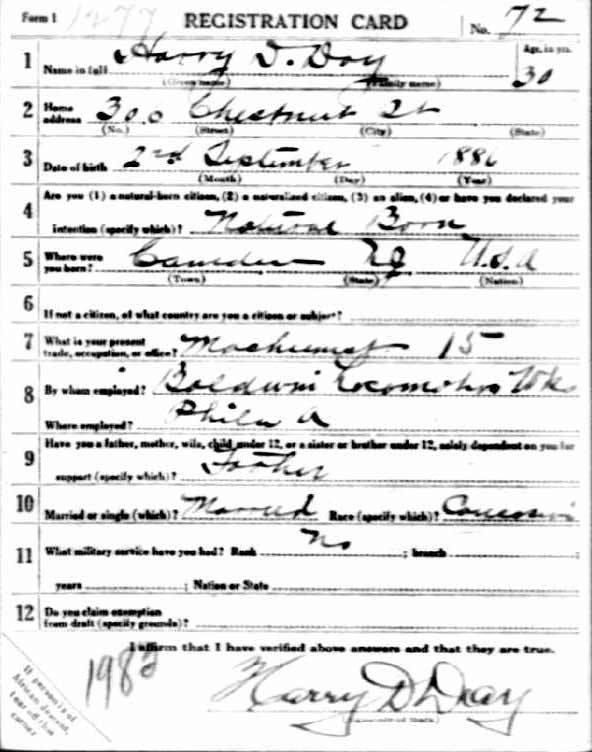 Form 1 1277 REGISTRATION CARD No. 72
1 Name in full Harry D. Day Age, in yrs. 30
(Given name) (Family name)
2 Home address 306 Chestnut St
(No.) (Street) (City) (State)
3 Date of birth 2nd September 1886
(Month) (Day) (Year)
4 Are you (1) a natural-born citizen, (2) a naturalized citizen, (3) an alien, (4) or have you declared your
intention (specify which)? Natural Born
5 Where were you born? Camden NJ U.S.A
(Town) (State) (Nation)
6 If not a citizen, of what country are you a citizen or subject?
7 What is your present trade, occupation, or office? Machinist 15
8 By whom employed? Baldwin Locomotive Wks
Where employed? Phila
9 Have you a father, mother, wife, child under 12, or a sister or brother under 12, solely dependent on you for
support (specify which)? Father
10 Married or single (which)? Married Race (specify which)? Caucasian
11 What military service have you had? Rank No ; branch ;
years ; Nation or State
12 Do you claim exemption from draft (specify grounds)?
I affirm that I have verified above answers and that they are true.
198
Harry D Day
If person is of
African descent,
tear off this
corner